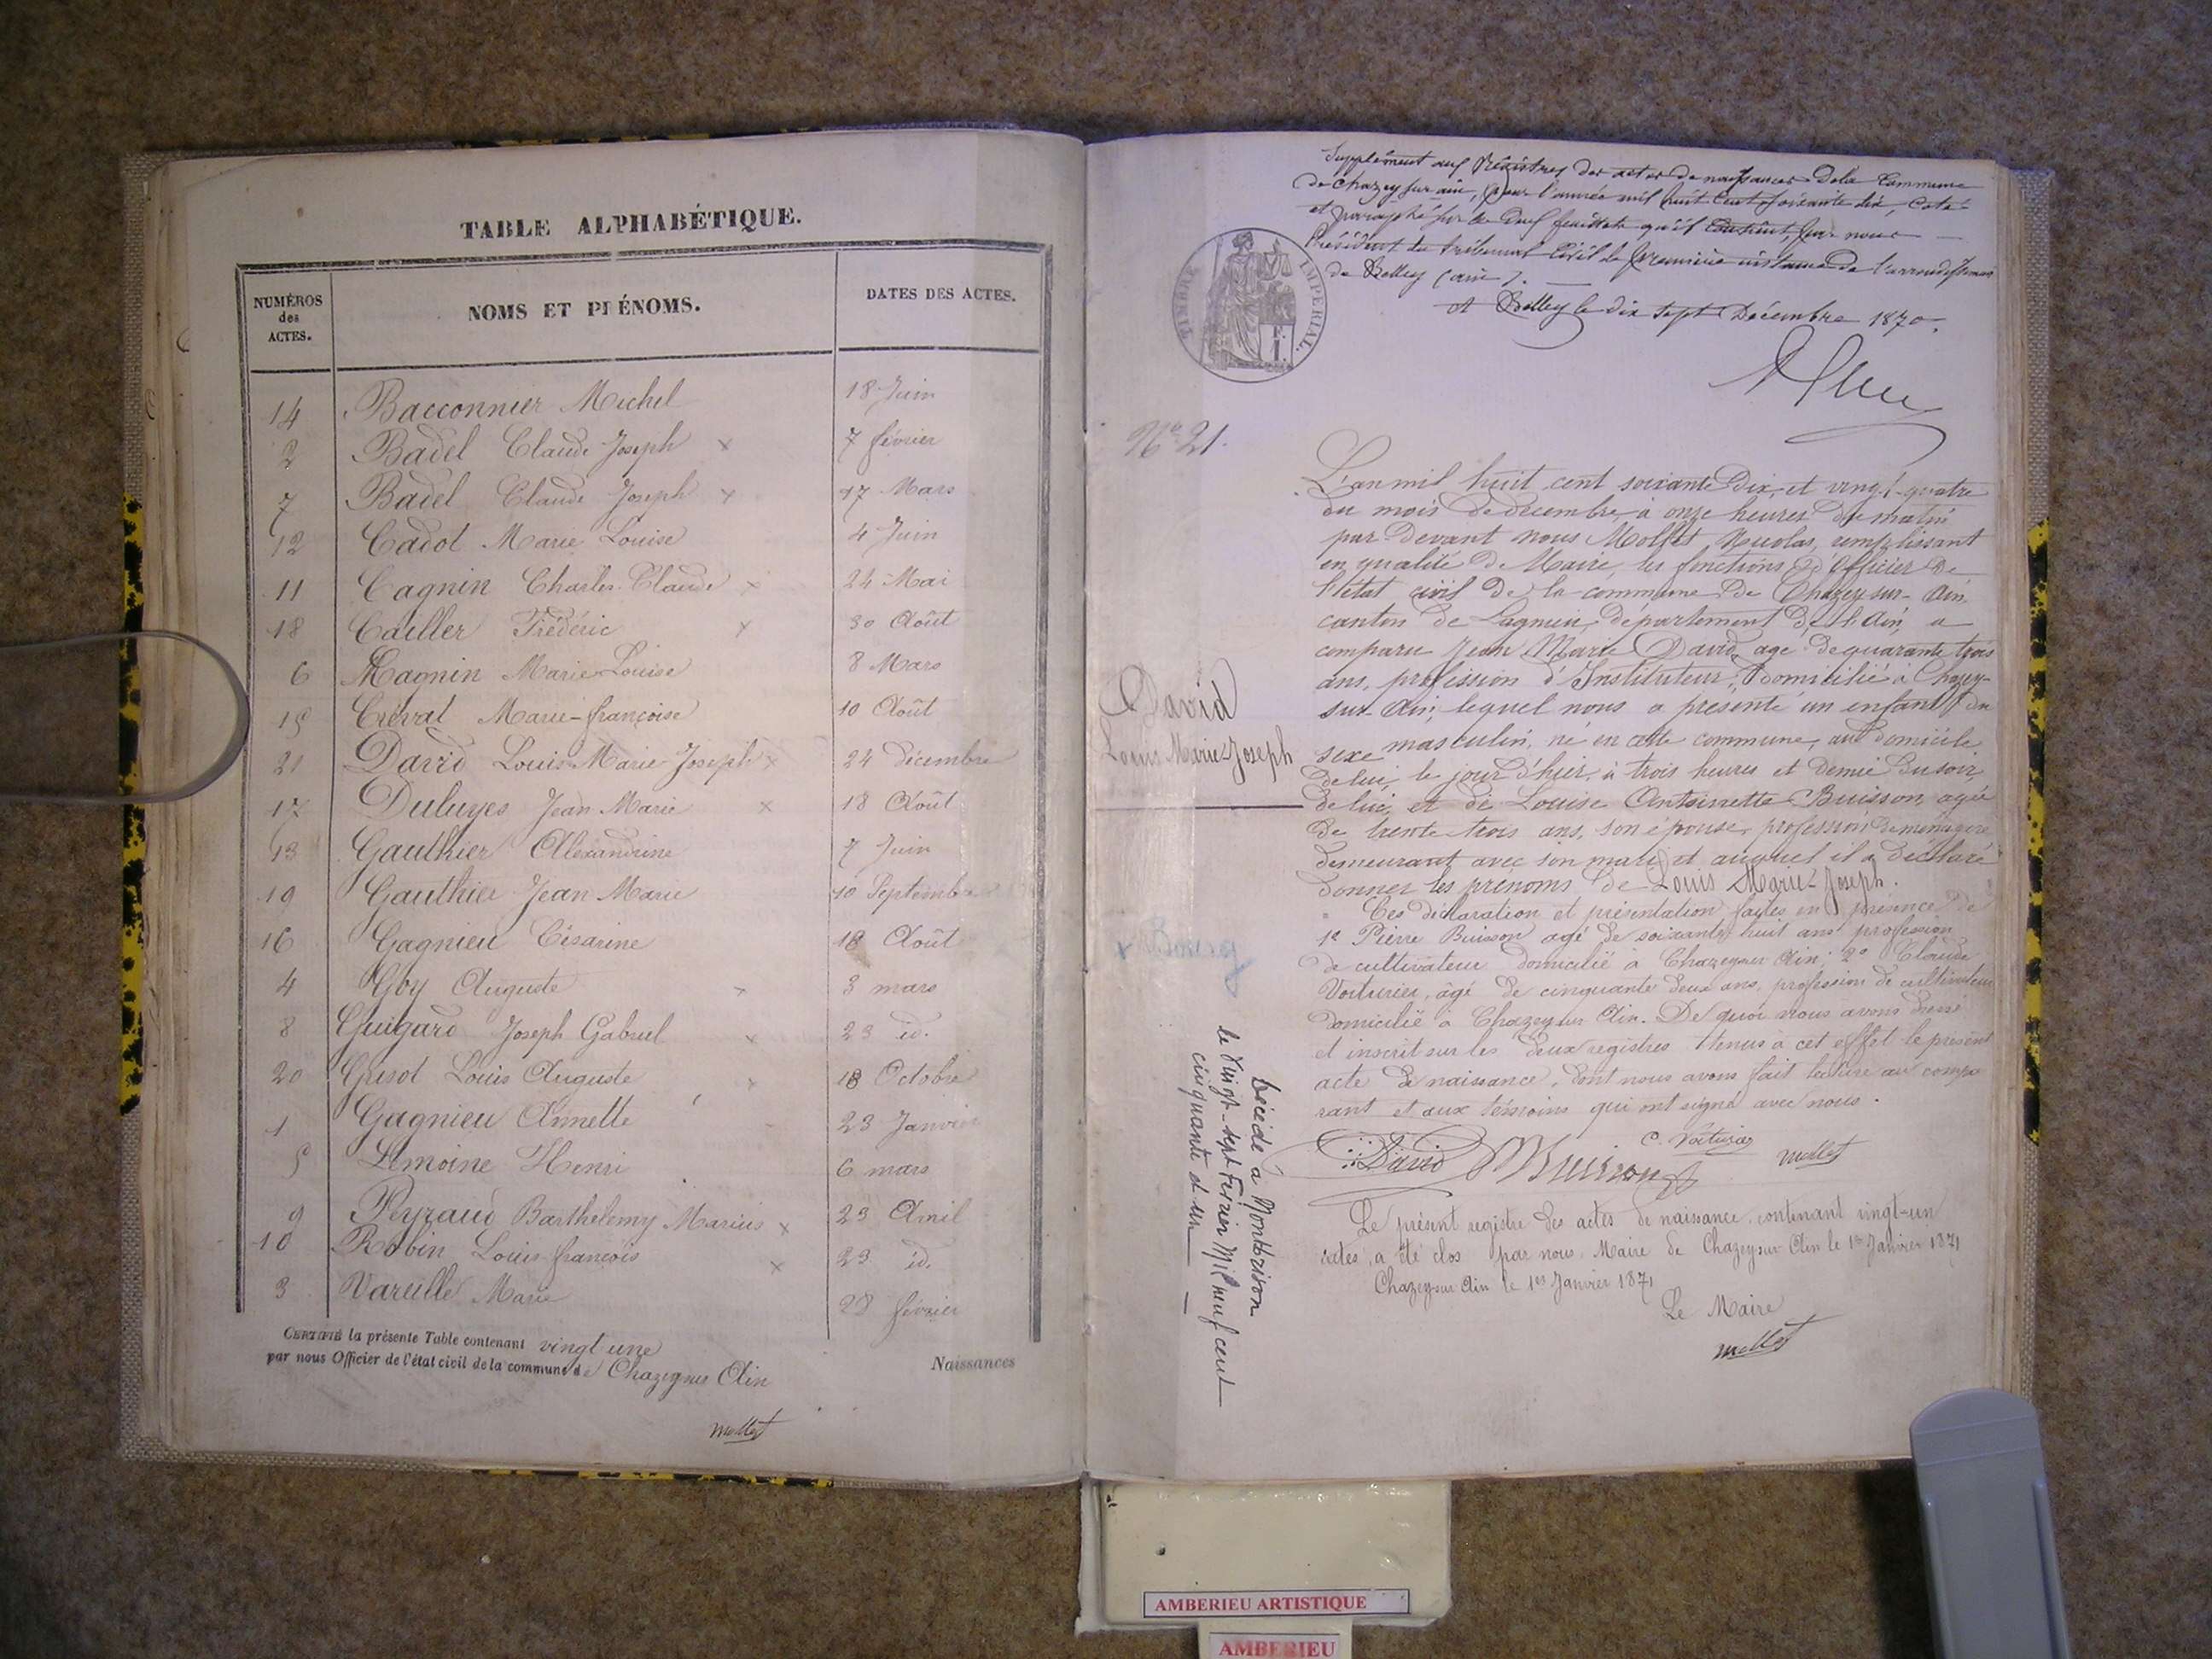 TABLE ALPHABÉTIQUE.
NUMÉROS des ACTES.
NOMS ET PRÉNOMS.
DATES DES ACTES.
14 Bacconnier Michel 18 Juin
2 Badel Claude Joseph x 7 février
7 Badel Claude Joseph x 17 Mars
12 Cadot Marie Louise 4 Juin
11 Cagnin Charles Claude x 24 Mai
18 Cailler Frédéric x 30 Août
6 Magnin Marie Louise 8 Mars
15 Créval Marie-françoise 10 Août
21 David Louis Marie Joseph x 24 décembre
17 Duluyes Jean Marie x 18 Août
13 Gauthier Alexandrine 7 Juin
19 Gauthier Jean Marie 10 Septembre
16 Gagnieu Césarine 18 Août
4 Goy Auguste x 3 mars
8 Guigard Joseph Gabriel x 23 id.
20 Grisot Louis Auguste x 18 Octobre
1 Gagnieu Annette 23 Janvier
5 Lemoine Henri 6 mars
9 Peyraud Barthelemy Marius x 23 Avril
10 Robin Louis françois x 23 id.
3 Vareille Marie 28 février
CERTIFIÉ la présente Table contenant vingt une
par nous Officier de l'état civil de la commune de Chazey sur Ain
Naissances
mollet
Supplément aux Registres des actes de naissances De la Commune
de Chazey sur ain, pour l'année mil huit Cent soixante dix, coté
et paraphé sur les deux feuillets qu'il contient, par nous
Président du tribunal Civil de première instance de l'arrondissement
de Belley (ain).
A Belley le dix sept Décembre 1870.
TIMBRE IMPÉRIAL.
E.
I.
No 21.
David
Louis Marie Joseph
L'an mil huit cent soixante Dix, et vingt-quatre
du mois de decembre à onze heures du matin
par Devant nous Mollet Nicolas, remplissant
en qualité de Maire, les fonctions d'Officier de
l'état civil de la commune de Chazey-sur-Ain,
canton de Lagnieu, département de l'Ain, a
comparu Jean Marie David, agé de quarante trois
ans, profession d'Instituteur, domicilié à Chazey-
sur-Ain; lequel nous a présenté un enfant du
sexe masculin, né en cette commune, au domicile
de lui, le jour d'hier, à trois heures et demie du soir
de lui, et de Louise Antoinette Buisson, agée
de trente trois ans, son épouse, profession de ménagère
demeurant avec son mari et auquel il a déclaré
donner les prénoms de Louis Marie-Joseph.
Ces déclaration et présentation faites en présence de
1o Pierre Buisson agé de soixante huit ans profession
de cultivateur domicilié à Chazey sur Ain; 2o Claude
Voiturier, âgé de cinquante deux ans, profession de cultivateur
domicilié à Chazey sur Ain. De quoi nous avons dressé
et inscrit sur les deux registres tenus à cet effet le présent
acte de naissance, dont nous avons fait lecture au compa
rant et aux témoins qui ont signé avec nous.
David Buisson C. Voiturier mollet
Décédé à Montbrison
le Vingt-sept Février Mil neuf cent
cinquante et un
Le présent registre des actes de naissance, contenant vingt-un
actes, a été clos par nous, Maire de Chazey sur Ain le 1er Janvier 1871
Chazey sur Ain le 1er Janvier 1871
Le Maire
mollet
AMBERIEU ARTISTIQUE
AMBERIEU